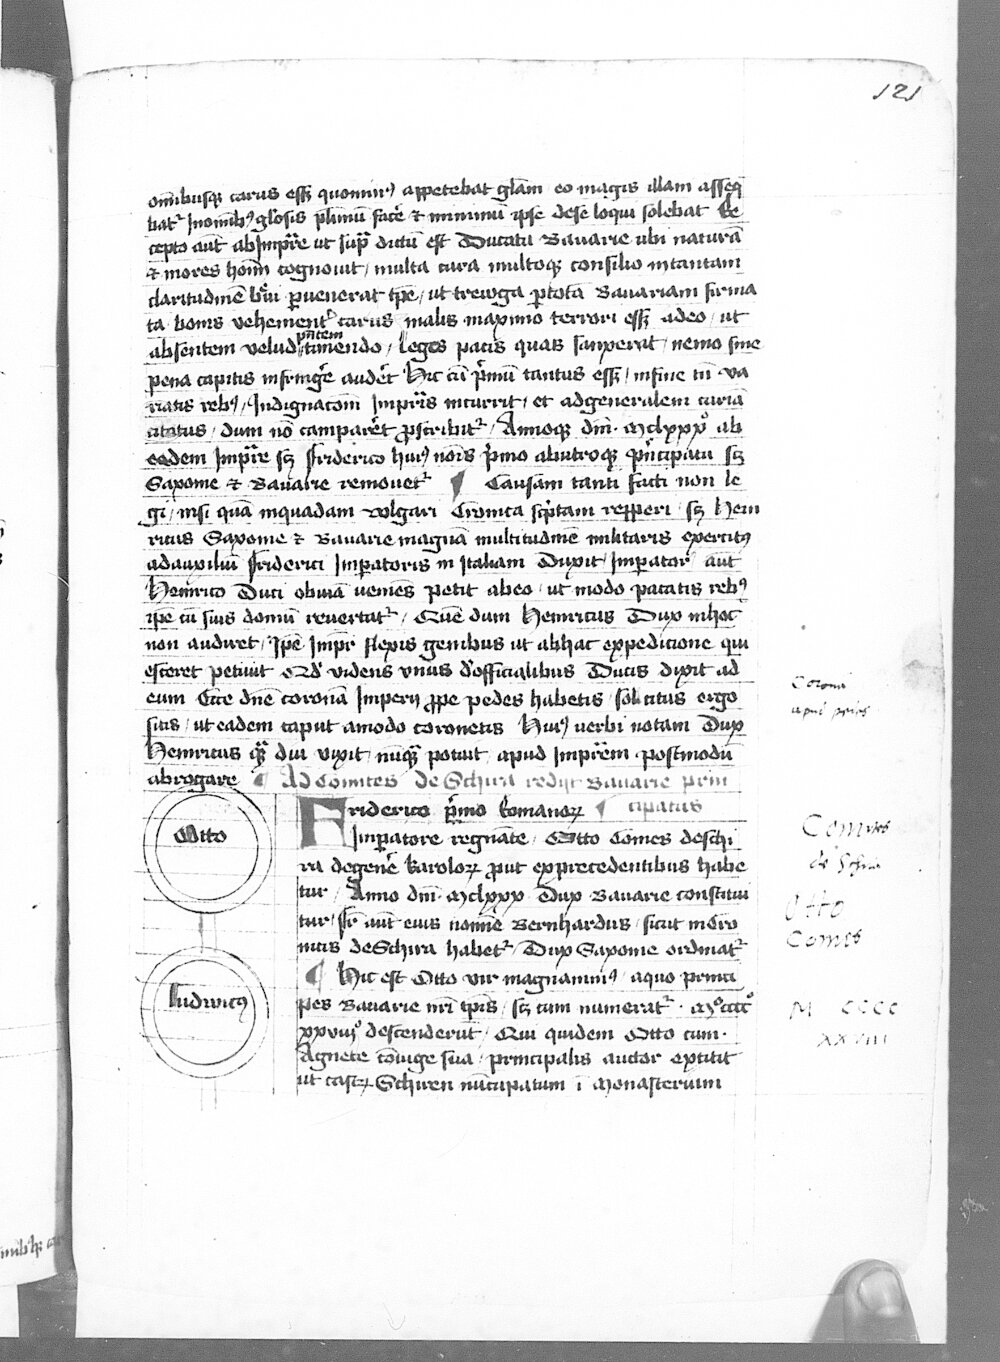 121
omnibusq carus esse quominus appetebat gloam eo magis illam asseq
batur In omnibus glosis plurimum face et minimum ipse de se loqui solebat Re
cepto aut ab Impere ut supra dictum est Ducatu Bavarie ubi natura
et mores hoim cognovit / multa cura multoque consilio in tantam
claritudinem brevi pervenerat tpe / ut trewga per tota Bavariam firma
ta bonis vehementer carus malis maximo terrori esset adeo / ut
pntem
absentem velud timendo / leges pacis quas sanxerat / nemo sine
pena capitis infringere auderet Hic cum primum tantus esset / in fine tn va
riatis rebus / Indignacoem Impris incurrit / et ad generalem curia
citatus / dum no comparet proscribitur / Annoque dni Mclxxx ab
eodem Impere scz Friderico huius nois primo ab utroque principatu scz
Saxonie et Bavarie removetur Causam tanti facti non le
gi / nisi quam in quadam volgari Cronica scriptam repperi scz Hein
ricus Saxonie et Bavarie magna multitudine militaris exercitus
ad auxilium Friderici Imperatoris in Italiam Duxit / Imperator aut
Heinrico Duci obviam veniens petit ab eo / ut modo pacatis rebus
ipe cum suis domum revertatur / Quem dum Heinricus Dux in hoc
non audiret / Ipe Imper flexis genibus ut ab hac expedicione qui
esceret petivit Quod videns unus de officialibus Ducis dixit ad
eum Ecce dne corona Imperii prope pedes habetis / sollicitus ergo
sitis / ut eadem caput amodo coronetis Huius verbi notam Dux
Heinricus quam diu vixit / nunquam potuit apud Imprem postmodum
abrogare Ad Comites de Schira redijt Bavarie prin
cipatus
Friderico primo Romanorum
Imperatore regnante / Otto Comes de Schi
ra de genere Karolorum prout ex precedentibus habe
tur / Anno dni Mclxxx Dux Bavarie constitui
tur / Fr aut eius nomine Bernhardus / sicut in Cro
nicis de Schira habetur / Dux Saxonie ordinatur
Hic est Otto vir magnanimus / a quo princi
pes Bavarie nri tpis / scz cum numeratur Mcccc
xxviii descenderunt / Qui quidem Otto cum
Agnete coniuge sua / principalis auctor extitit
ut castrum Schiren nuncupatum i Monasterium
Otto
Ludwicus
Corona
Comites
de Schira
Otto
Comes
M CCCC
XXVIII